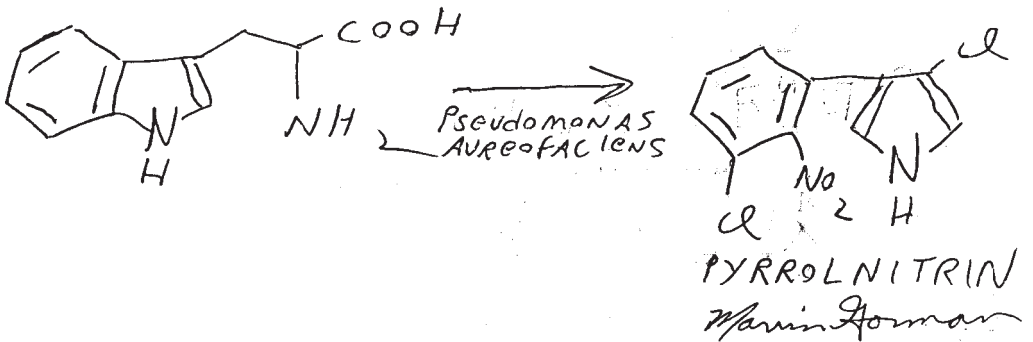 COOH
NH2
N
H
Pseudomonas
Aureofaciens
Cl
NO2
N
H
Cl
PYRROLNITRIN
Marvin Gorman